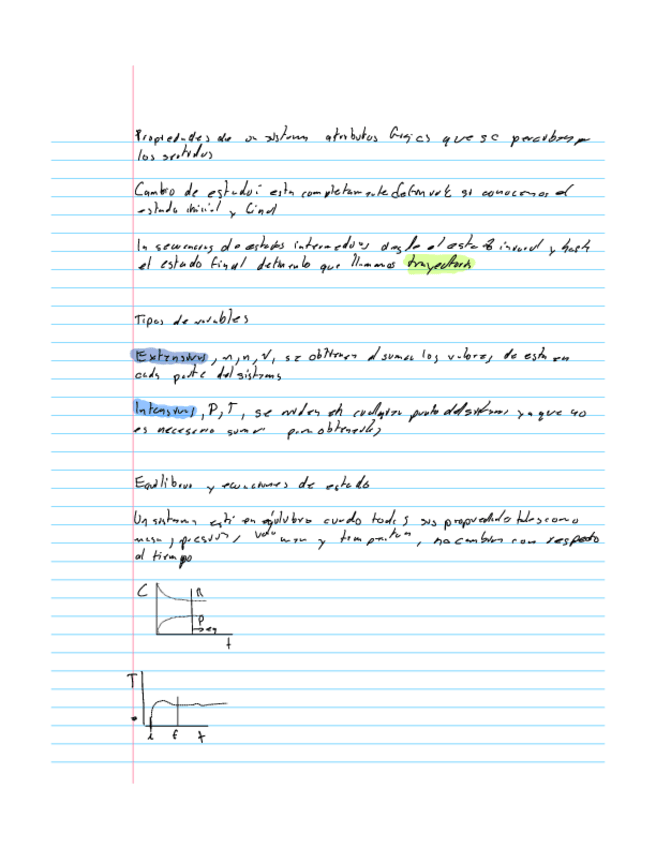 Propiedades de un sistema atributos físicos que se perciben por
los sentidos
Cambio de estado: esta completamente si conocemos el
estado inicial y final
la secuencia de estados intermedios desde el estado inicial y hasta
el estado final que llamamos trayectoria
Tipos de variables
Extensivas, m, n, V, se obtienen al sumar los valores de esta en
cada parte del sistema
Intensivas, P, T, se miden en cualquier punto del sistema ya que no
es necesario sumar para obtenerlas
Equilibrio y ecuaciones de estado
Un sistema está en equilibrio cuando todas sus propiedades tales como
masa, presión, volumen y temperatura, no cambian con respecto
al tiempo
C R
P
eq
t
T
i f t